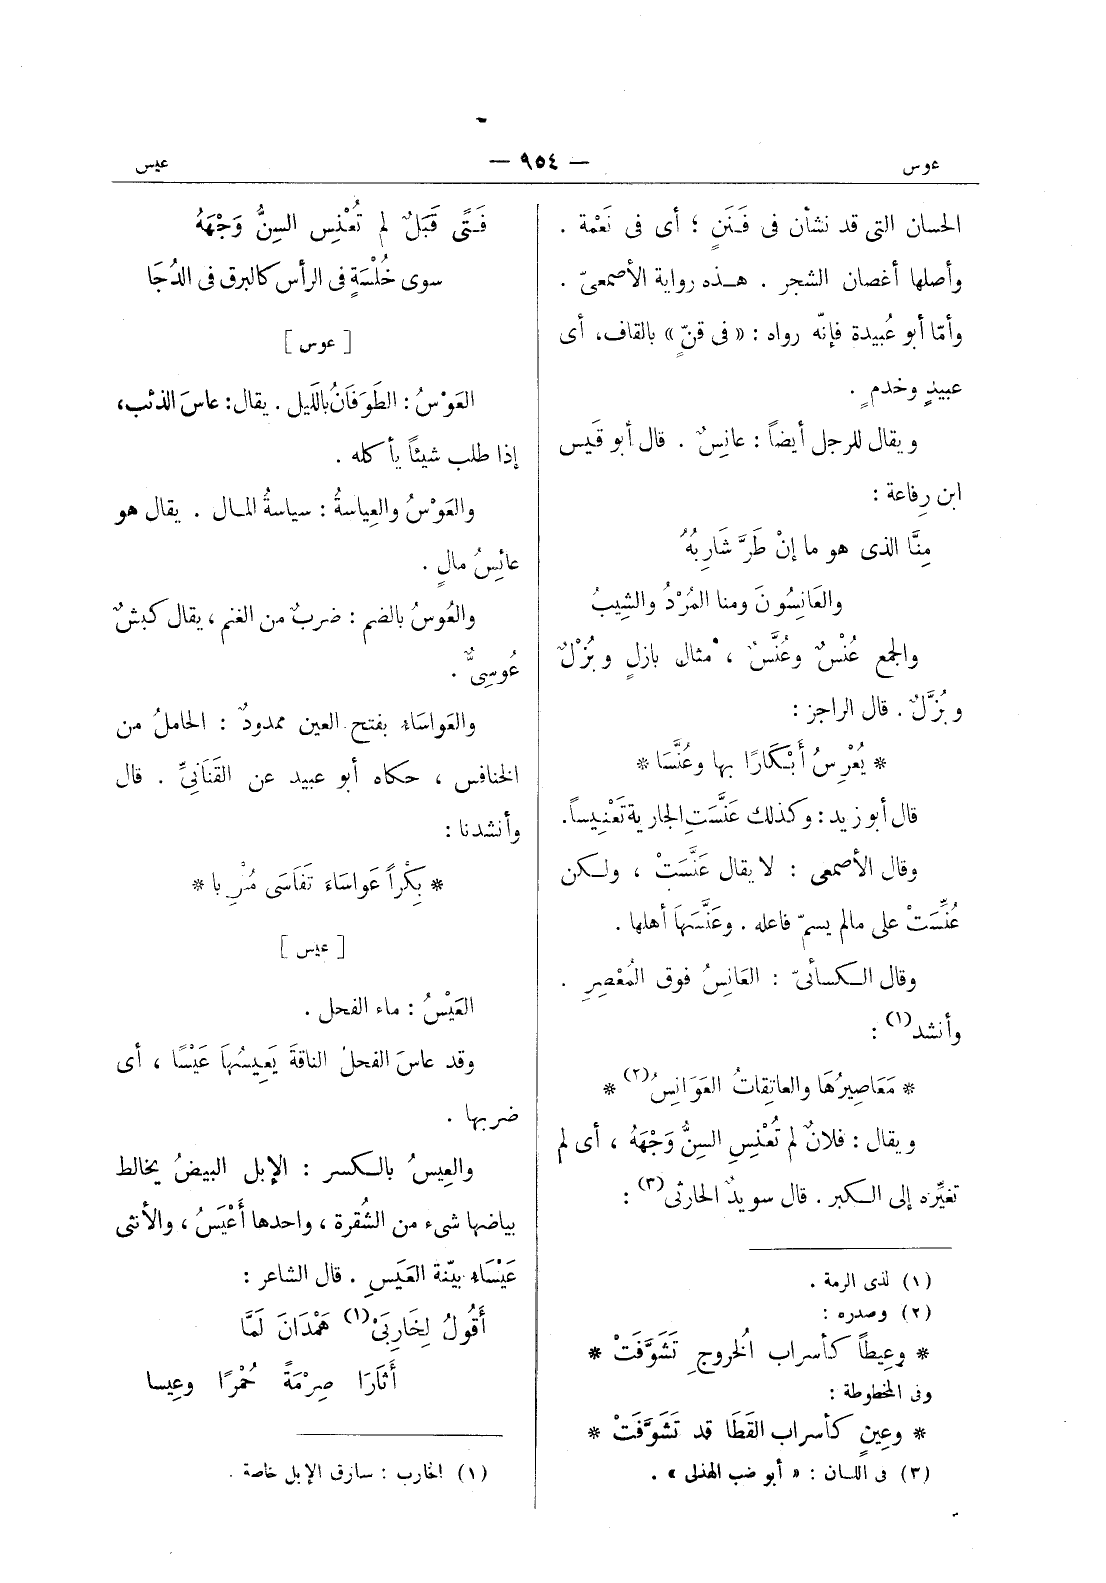 عوس
— ٩٥٤ —
عيس
الحسان التى قد نشأن فى فَنَنٍ ؛ أى فى نَعْمة .
وأصلها أغصان الشجر . هذه رواية الأصمعىّ .
وأمّا أبو عُبيدة فإنّه رواه : « فى قنٍّ » بالقاف، أى
عبيدٍ وخدمٍ .
ويقال للرجل أيضاً : عانِسٌ . قال أبو قَيس
ابن رِفاعة :
مِنَّا الذى هو ما إنْ طَرَّ شَارِبُهُ
والعَانِسُونَ ومنا المُرْدُ والشِيبُ
والجمع عُنْسٌ وعُنَّسٌ ، مثال بازلٍ وبُزْلٌ
وبُزَّلٌ . قال الراجز :
* يُعْرِسُ أَبْكَارًا بها وعُنَّسَا *
قال أبو زيد : وكذلك عَنَّسَتِ الجارية تَعْنِيساً .
وقال الأصمعى : لا يقال عَنَّسَتْ ، ولكن
عُنِّسَتْ على مالم يسمّ فاعله . وعَنَّسَهَا أهلها .
وقال الكسائىّ : العَانِسُ فوق المُعْصِرِ .
وأنشد (١) :
* مَعَاصِيرُهَا والعاتِقاتُ العَوَانِسُ (٢) *
ويقال : فلانٌ لم تُعْنِسِ السِنُّ وَجْهَهُ ، أى لم
تغيّره إلى الكبر . قال سويدٌ الحارثى (٣) :
(١) لذى الرمة .
(٢) وصدره :
* وعِيطاً كأسراب الخُروجِ تَشَوَّفَتْ *
وفى المخطوطة :
* وعِينٍ كأسراب القَطَا قد تَشَوَّفَتْ *
(٣) فى اللسان : « أبو ضب الهذلى » .
فَتًى قَبَلٌ لم تُعْنِسِ السِنُّ وَجْهَهُ
سوى خُلْسَةٍ فى الرأس كالبرق فى الدُجَا
[ عوس ]
العَوْسُ : الطَوَفَانُ بالليل . يقال : عاسَ الذئب،
إذا طلب شيئاً يأكله .
والعَوْسُ والعِياسةُ : سياسةُ المال . يقال هو
عائِسُ مالٍ .
والعُوسُ بالضم : ضربٌ من الغنم ، يقال كبشٌ
عُوسِىٌّ .
والعَواسَاء بفتح العين ممدودٌ : الحاملُ من
الخنافس ، حكاه أبو عبيد عن القَنَانِىِّ . قال
وأنشدنا :
* بِكْراً عَواسَاءَ تَفَاسَى مُقْرِبا *
[ عيس ]
العَيْسُ : ماء الفحل .
وقد عاسَ الفحلُ الناقةَ يَعِيسُهَا عَيْسًا ، أى
ضربها .
والعِيسُ بالكسر : الإبل البيضُ يخالط
بياضها شىء من الشُقرة ، واحدها أَعْيَسُ ، والأنثى
عَيْسَاء بيّنة العَيَسِ . قال الشاعر :
أَقُولُ لِخَارِبَىْ (١) هَمْدَانَ لَمَّا
أَثَارَا صِرْمَةً حُمْرًا وعِيسا
(١) الخارب : سارق الإبل خاصة .